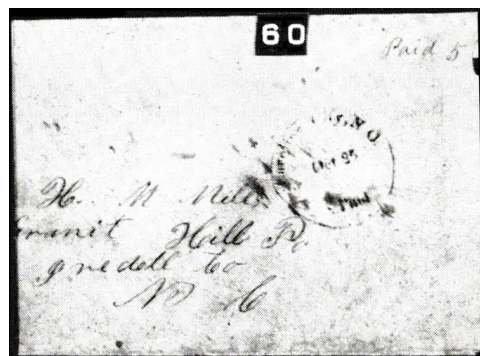 60
Paid 5
Oct 25
H. M Mills
Granit Hill Po
Iredell Co
N C